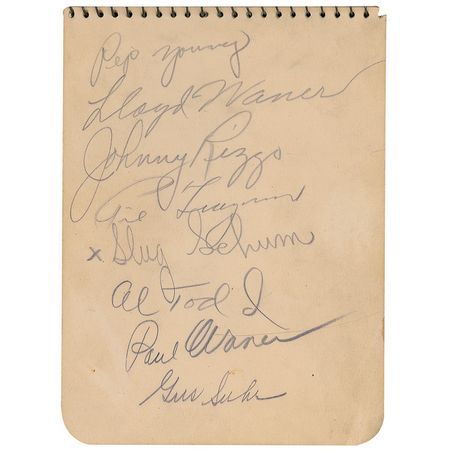 Pep Young
Lloyd Waner
Johnny Rizzo
Pie Traynor
x Slug Schum
Al Todd
Paul Waner
Gus Suhr